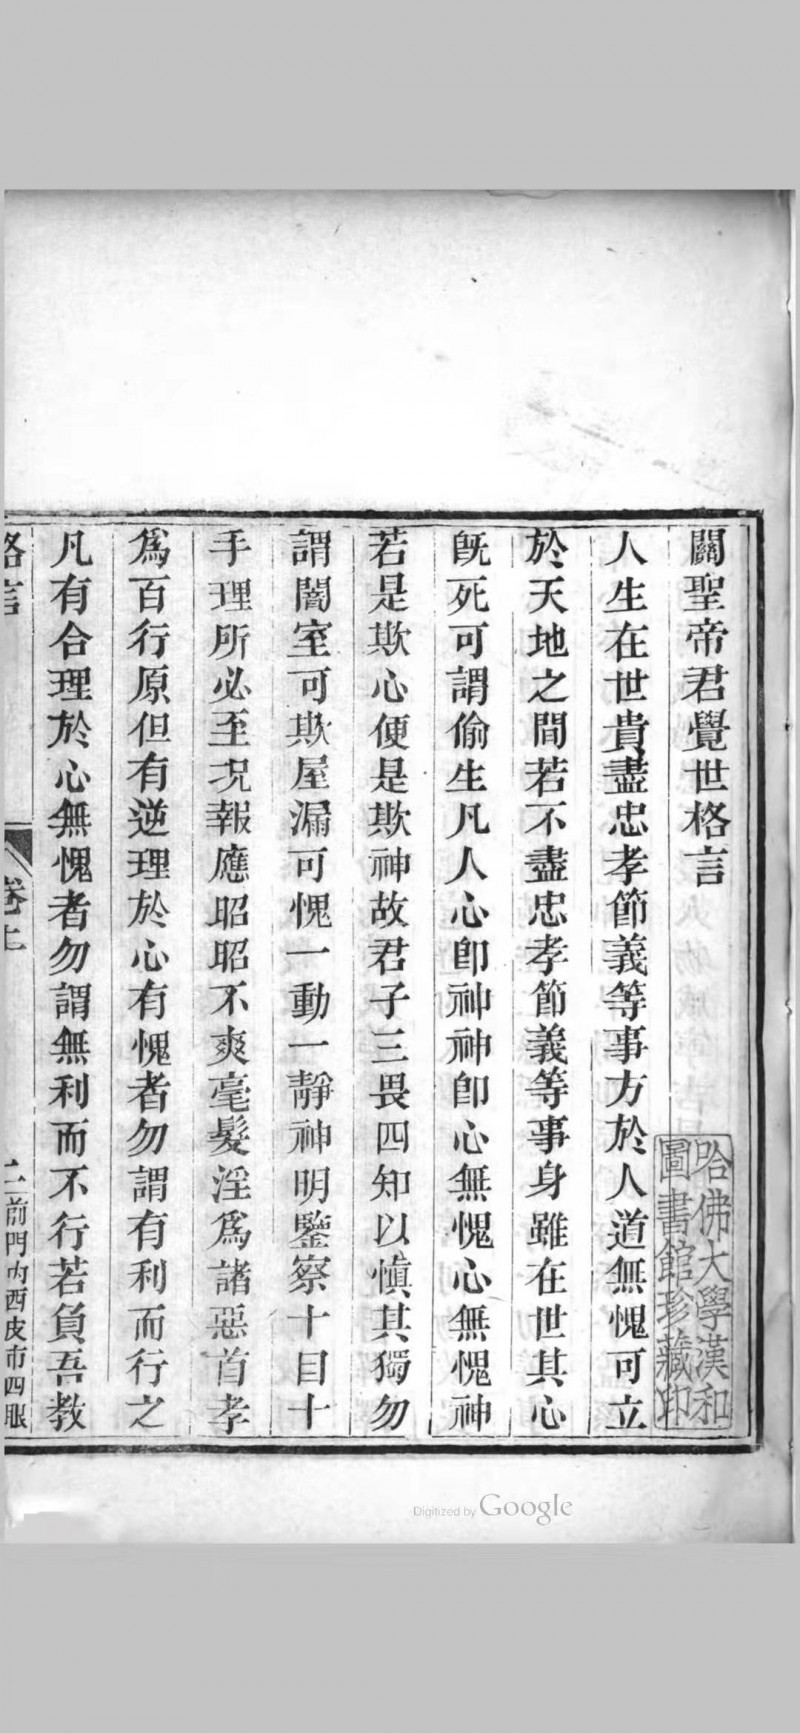 關聖帝君覺世格言
人生在世貴盡忠孝節義等事方於人道無愧可立
於天地之間若不盡忠孝節義等事身雖在世其心
旣死可謂偷生凡人心卽神神卽心無愧心無愧神
若是欺心便是欺神故君子三畏四知以愼其獨勿
謂闇室可欺屋漏可愧一動一靜神明鑒察十目十
手理所必至况報應昭昭不爽毫髮淫爲諸惡首孝
爲百行原但有逆理於心有愧者勿謂有利而行之
凡有合理於心無愧者勿謂無利而不行若負吾教
格言 卷上 二 前門內西皮市四眼
哈佛大學漢和
圖書館珍藏印
Digitized by Google